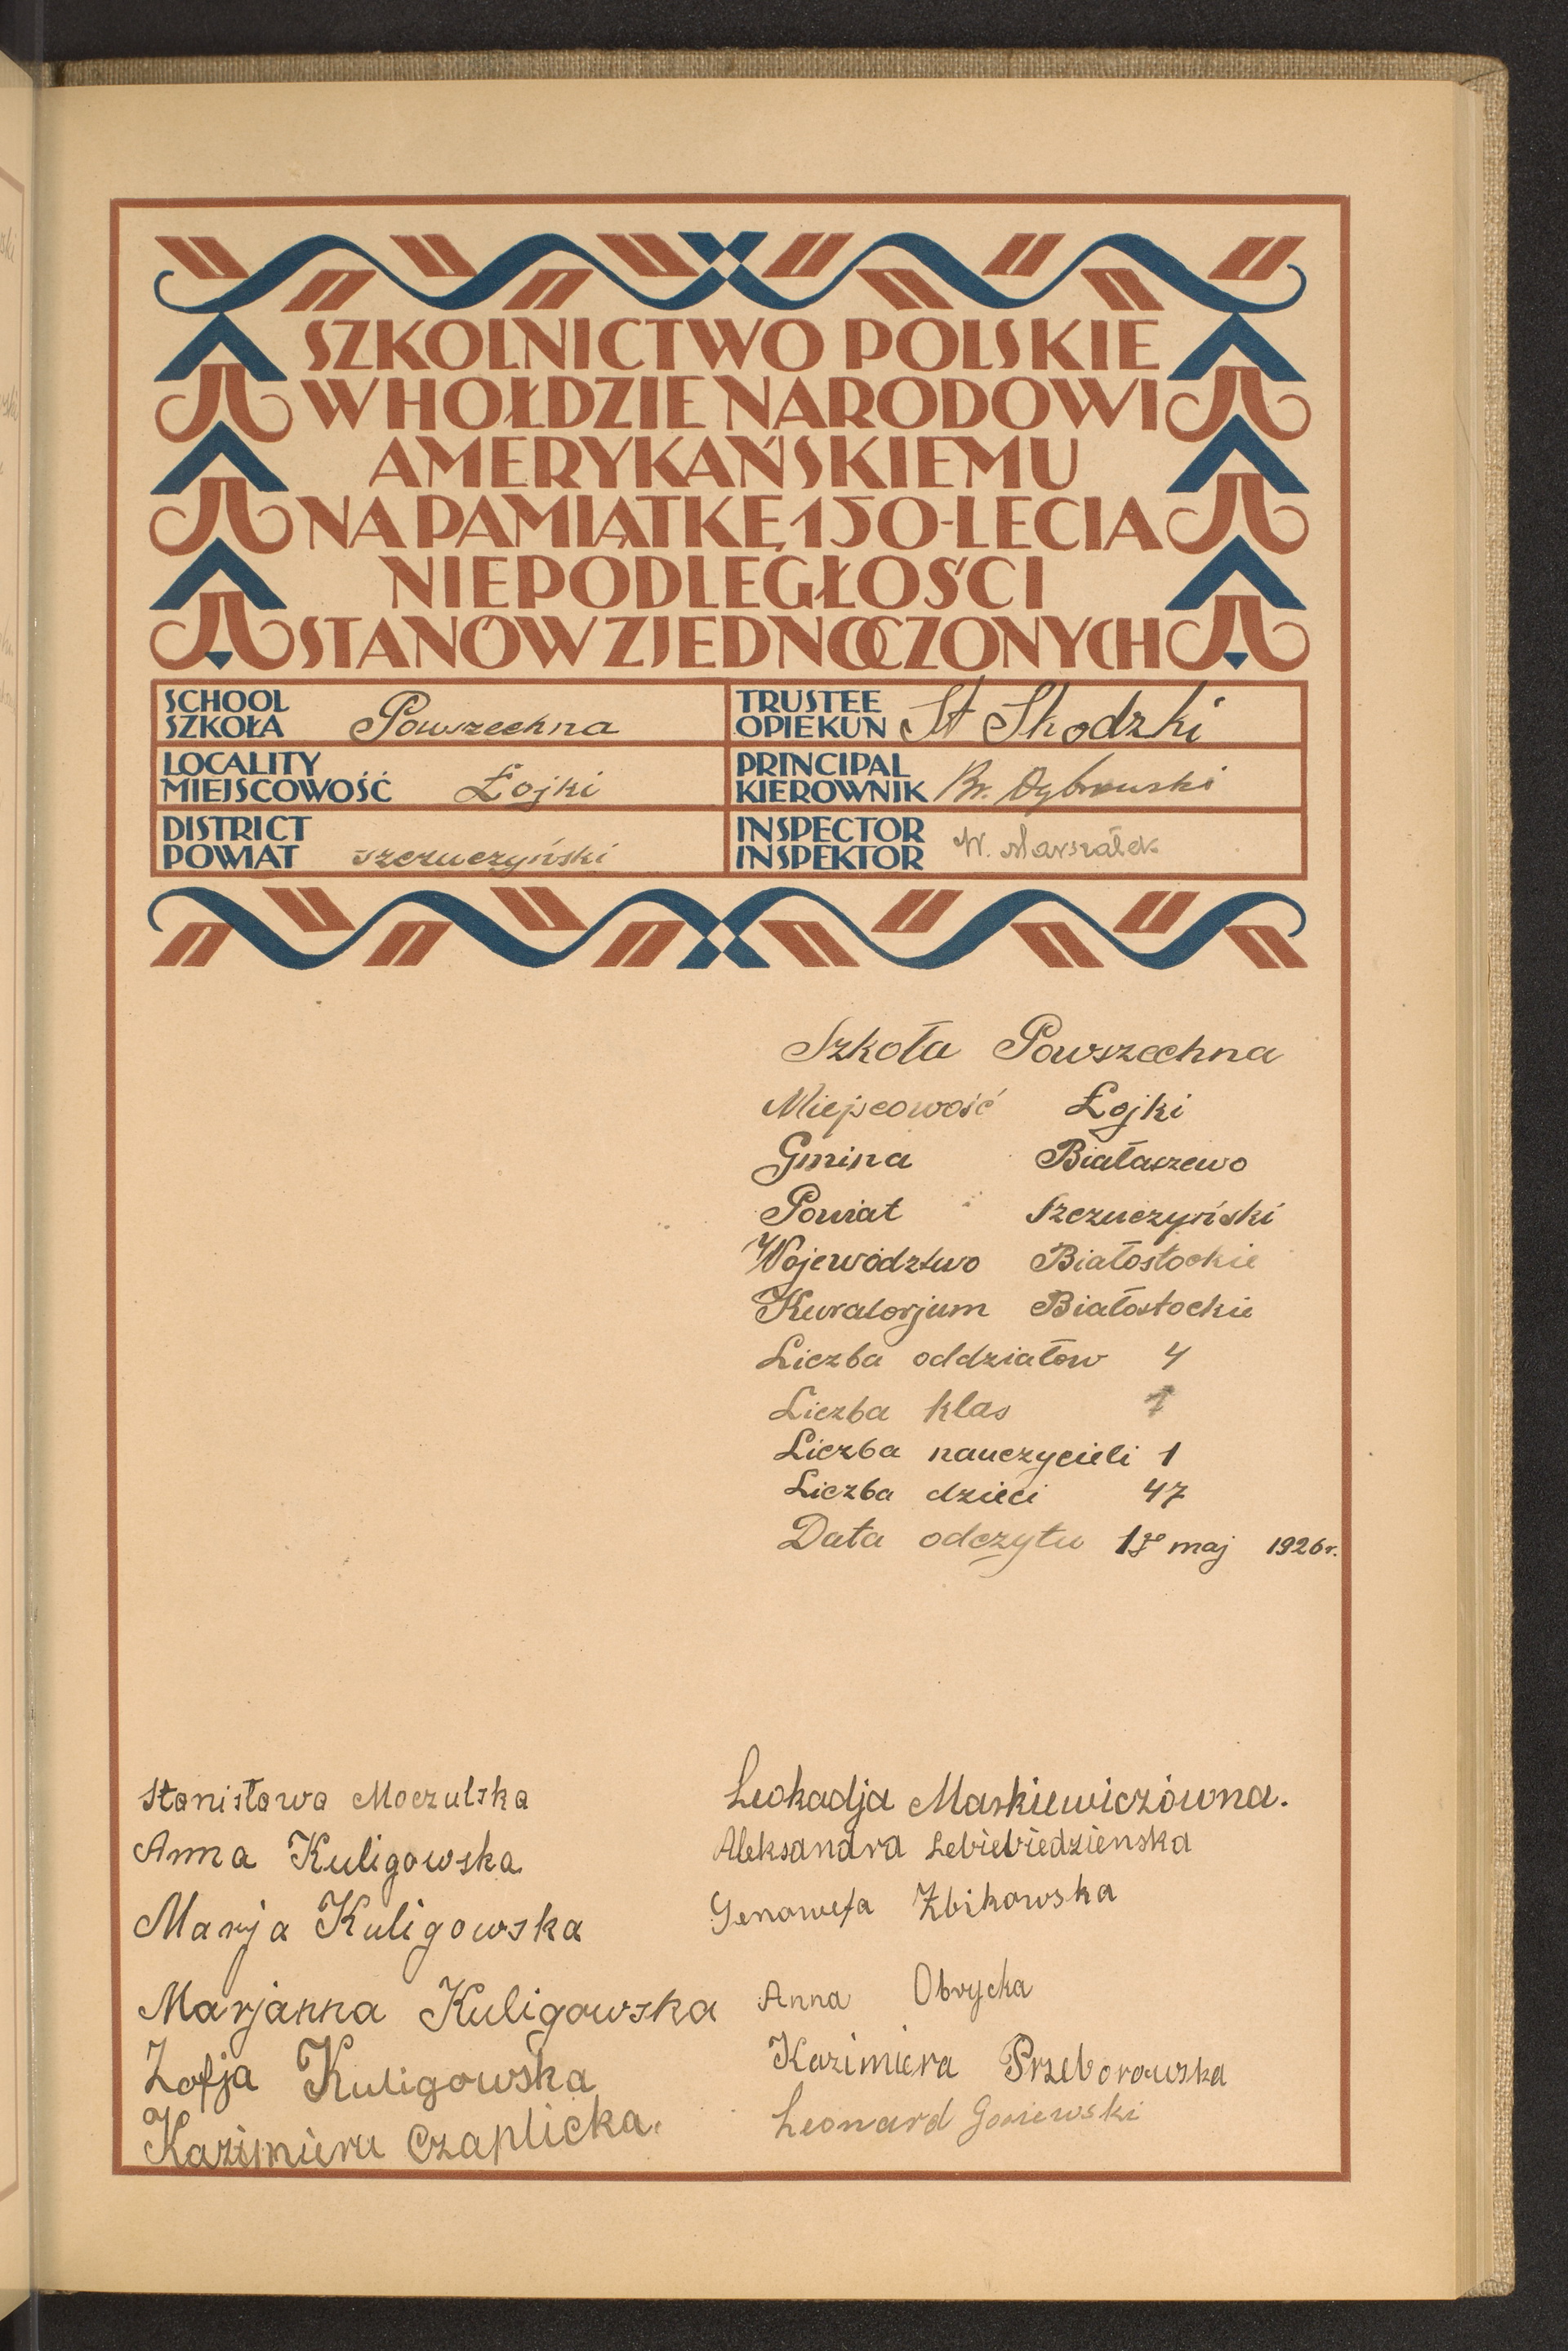 SZKOLNICTWO POLSKIE
W HOŁDZIE NARODOWI
AMERYKAŃSKIEMU
NA PAMIĄTKĘ 150-LECIA
NIEPODLEGŁOŚCI
STANÓW ZJEDNOCZONYCH
SCHOOL
SZKOŁA Powszechna
TRUSTEE
OPIEKUN St Skodzki
LOCALITY
MIEJSCOWOŚĆ Łojki
PRINCIPAL
KIEROWNIK Br. Dybowski
DISTRICT
POWIAT szczuczyński
INSPECTOR
INSPEKTOR W. Marszałek
Szkoła Powszechna
Miejscowość Łojki
Gmina Białaszewo
Powiat Szczuczyński
Województwo Białostockie
Kuratorjum Białostockie
Liczba oddziałów 4
Liczba klas 1
Liczba nauczycieli 1
Liczba dzieci 47
Data odczytu maj 1926 r.
Stanisława Moczulska
Anna Kuligowska
Marja Kuligowska
Marjanna Kuligowska
Zofja Kuligowska
Kazimiera Czaplicka.
Leokadja Maskiewiczówna.
Aleksandra Lebiebiedzienska
Genowefa Zbikowska
Anna Obrycka
Kazimiera Przeborowska
Leonard